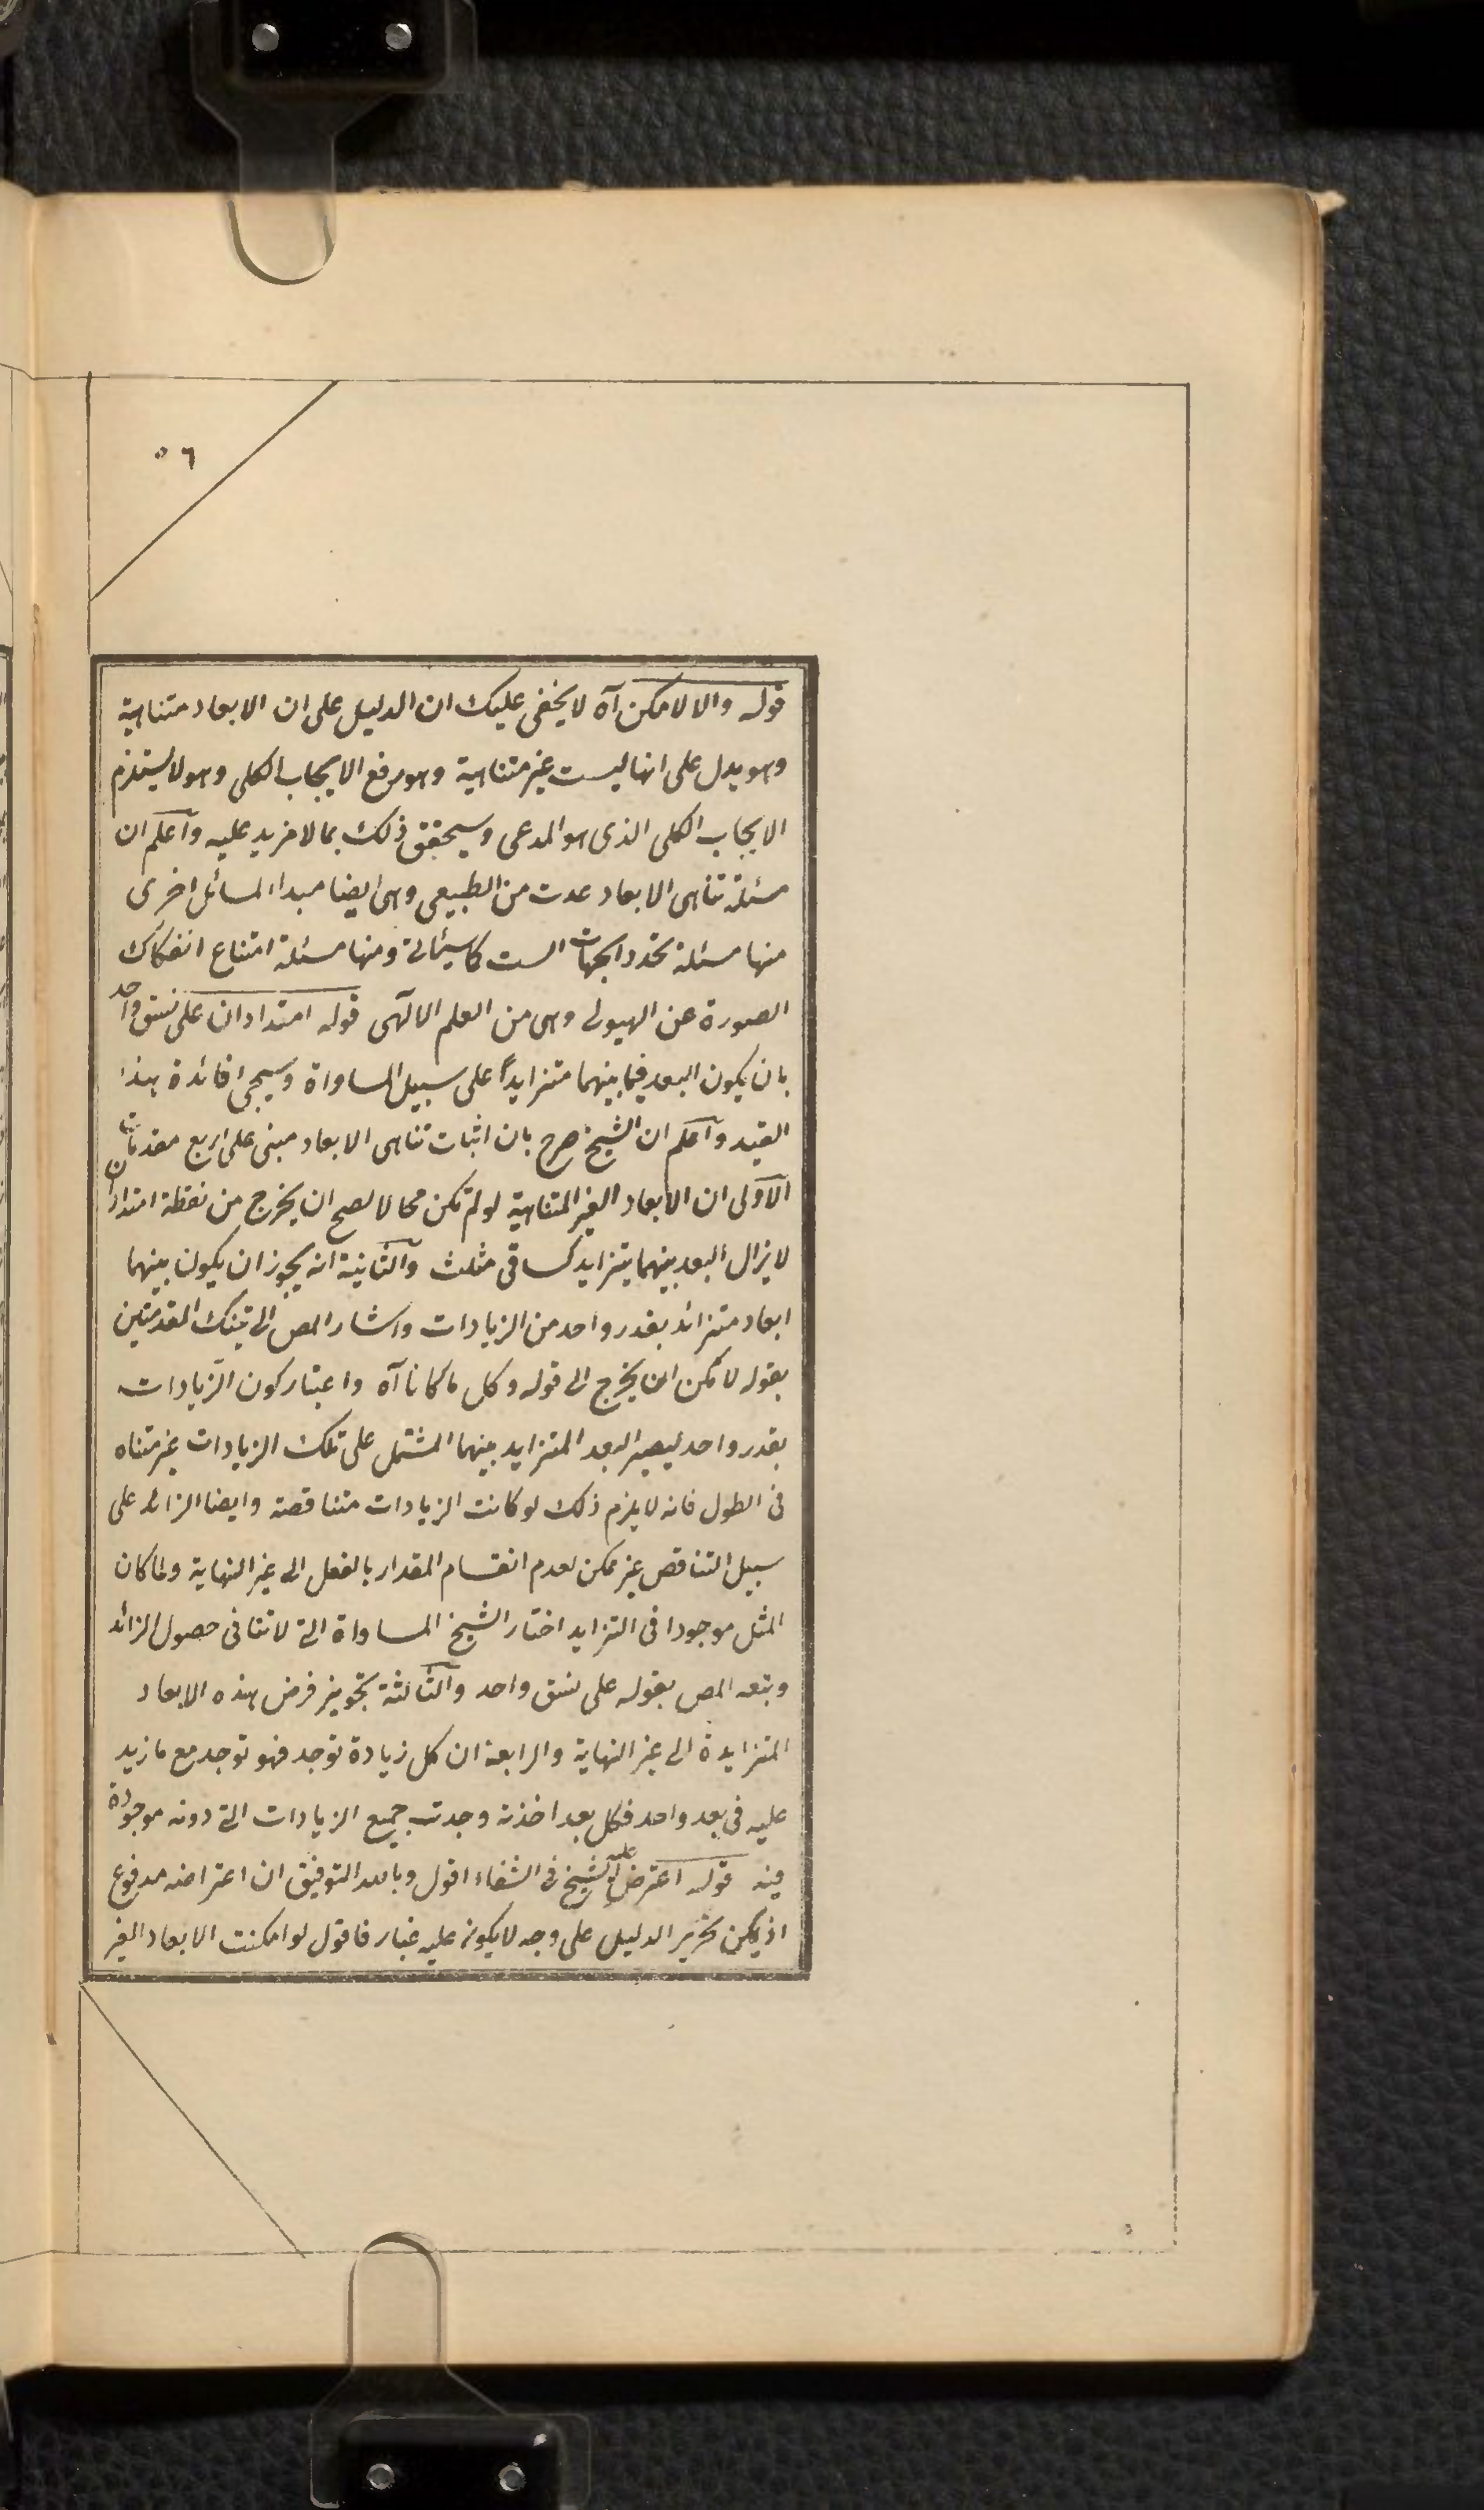 ٥٦
قوله والا لامكن آه لا يخفى عليك ان الدليل على ان الابعاد متناهية
وهو يدل على انها ليست غير متناهية وهو رفع الايجاب الكلى وهو لا يستلزم
الايجاب الكلى الذى هو المدعى وسيحقق ذلك بما لا مزيد عليه واعلم ان
مسئلة تناهى الابعاد عدت من الطبيعى وهى ايضا مبدا المسائل اخرى
منها مسئلة تحدد الجهات الست كاسيئاتى ومنها مسئلة امتناع انفكاك
الصورة عن الهيولى وهى من العلم الالٓهى قوله امتدادان على نسق واحد
بان يكون البعد فيما بينهما متزايداً على سبيل المساواة وسيجى فائدة هذا
القيد واعلم ان الشيخ صرح بان اثبات تناهى الابعاد مبنى على اربع مقدمات
الاولى ان الابعاد الغير المتناهية لو لم تكن محالا لصح ان يخرج من نقطة امتدادان
لا يزال البعد بينهما يتزايد كساقى مثلث والثانية انه يجوز ان يكون بينهما
ابعاد متزائد بقدر واحد من الزيادات واشار المص الى تينك المقدمتين
بقوله لامكن ان يخرج الى قوله وكل ما كانا آه واعتبار كون الزيادات
بقدر واحد ليصير البعد المتزايد بينهما المشتمل على تلك الزيادات غير متناه
فى الطول فانه لا يلزم ذلك لو كانت الزيادات متناقصة وايضا الزائد على
سبيل التناقص غير ممكن لعدم انقسام المقدار بالفعل الى غير النهاية ولما كان
المثل موجودا فى التزايد اختار الشيخ المساواة التى لا تنافى حصول الزائد
وتبعه المص بقوله على نسق واحد والثالثة تجويز فرض هذه الابعاد
المتزايدة الى غير النهاية والرابعة ان كل زيادة توجد فهو توجد مع ما زيد
عليه فى بعد واحد فكل بعد اخذته وجدت جميع الزيادات التى دونه موجودة
فيه قوله اعترض عليه الشيخ فى الشفاء اقول وبالله التوفيق ان اعتراضه مدفوع
اذ يمكن تحرير الدليل على وجه لا يكون عليه غبار فاقول لو امكنت الابعاد الغير